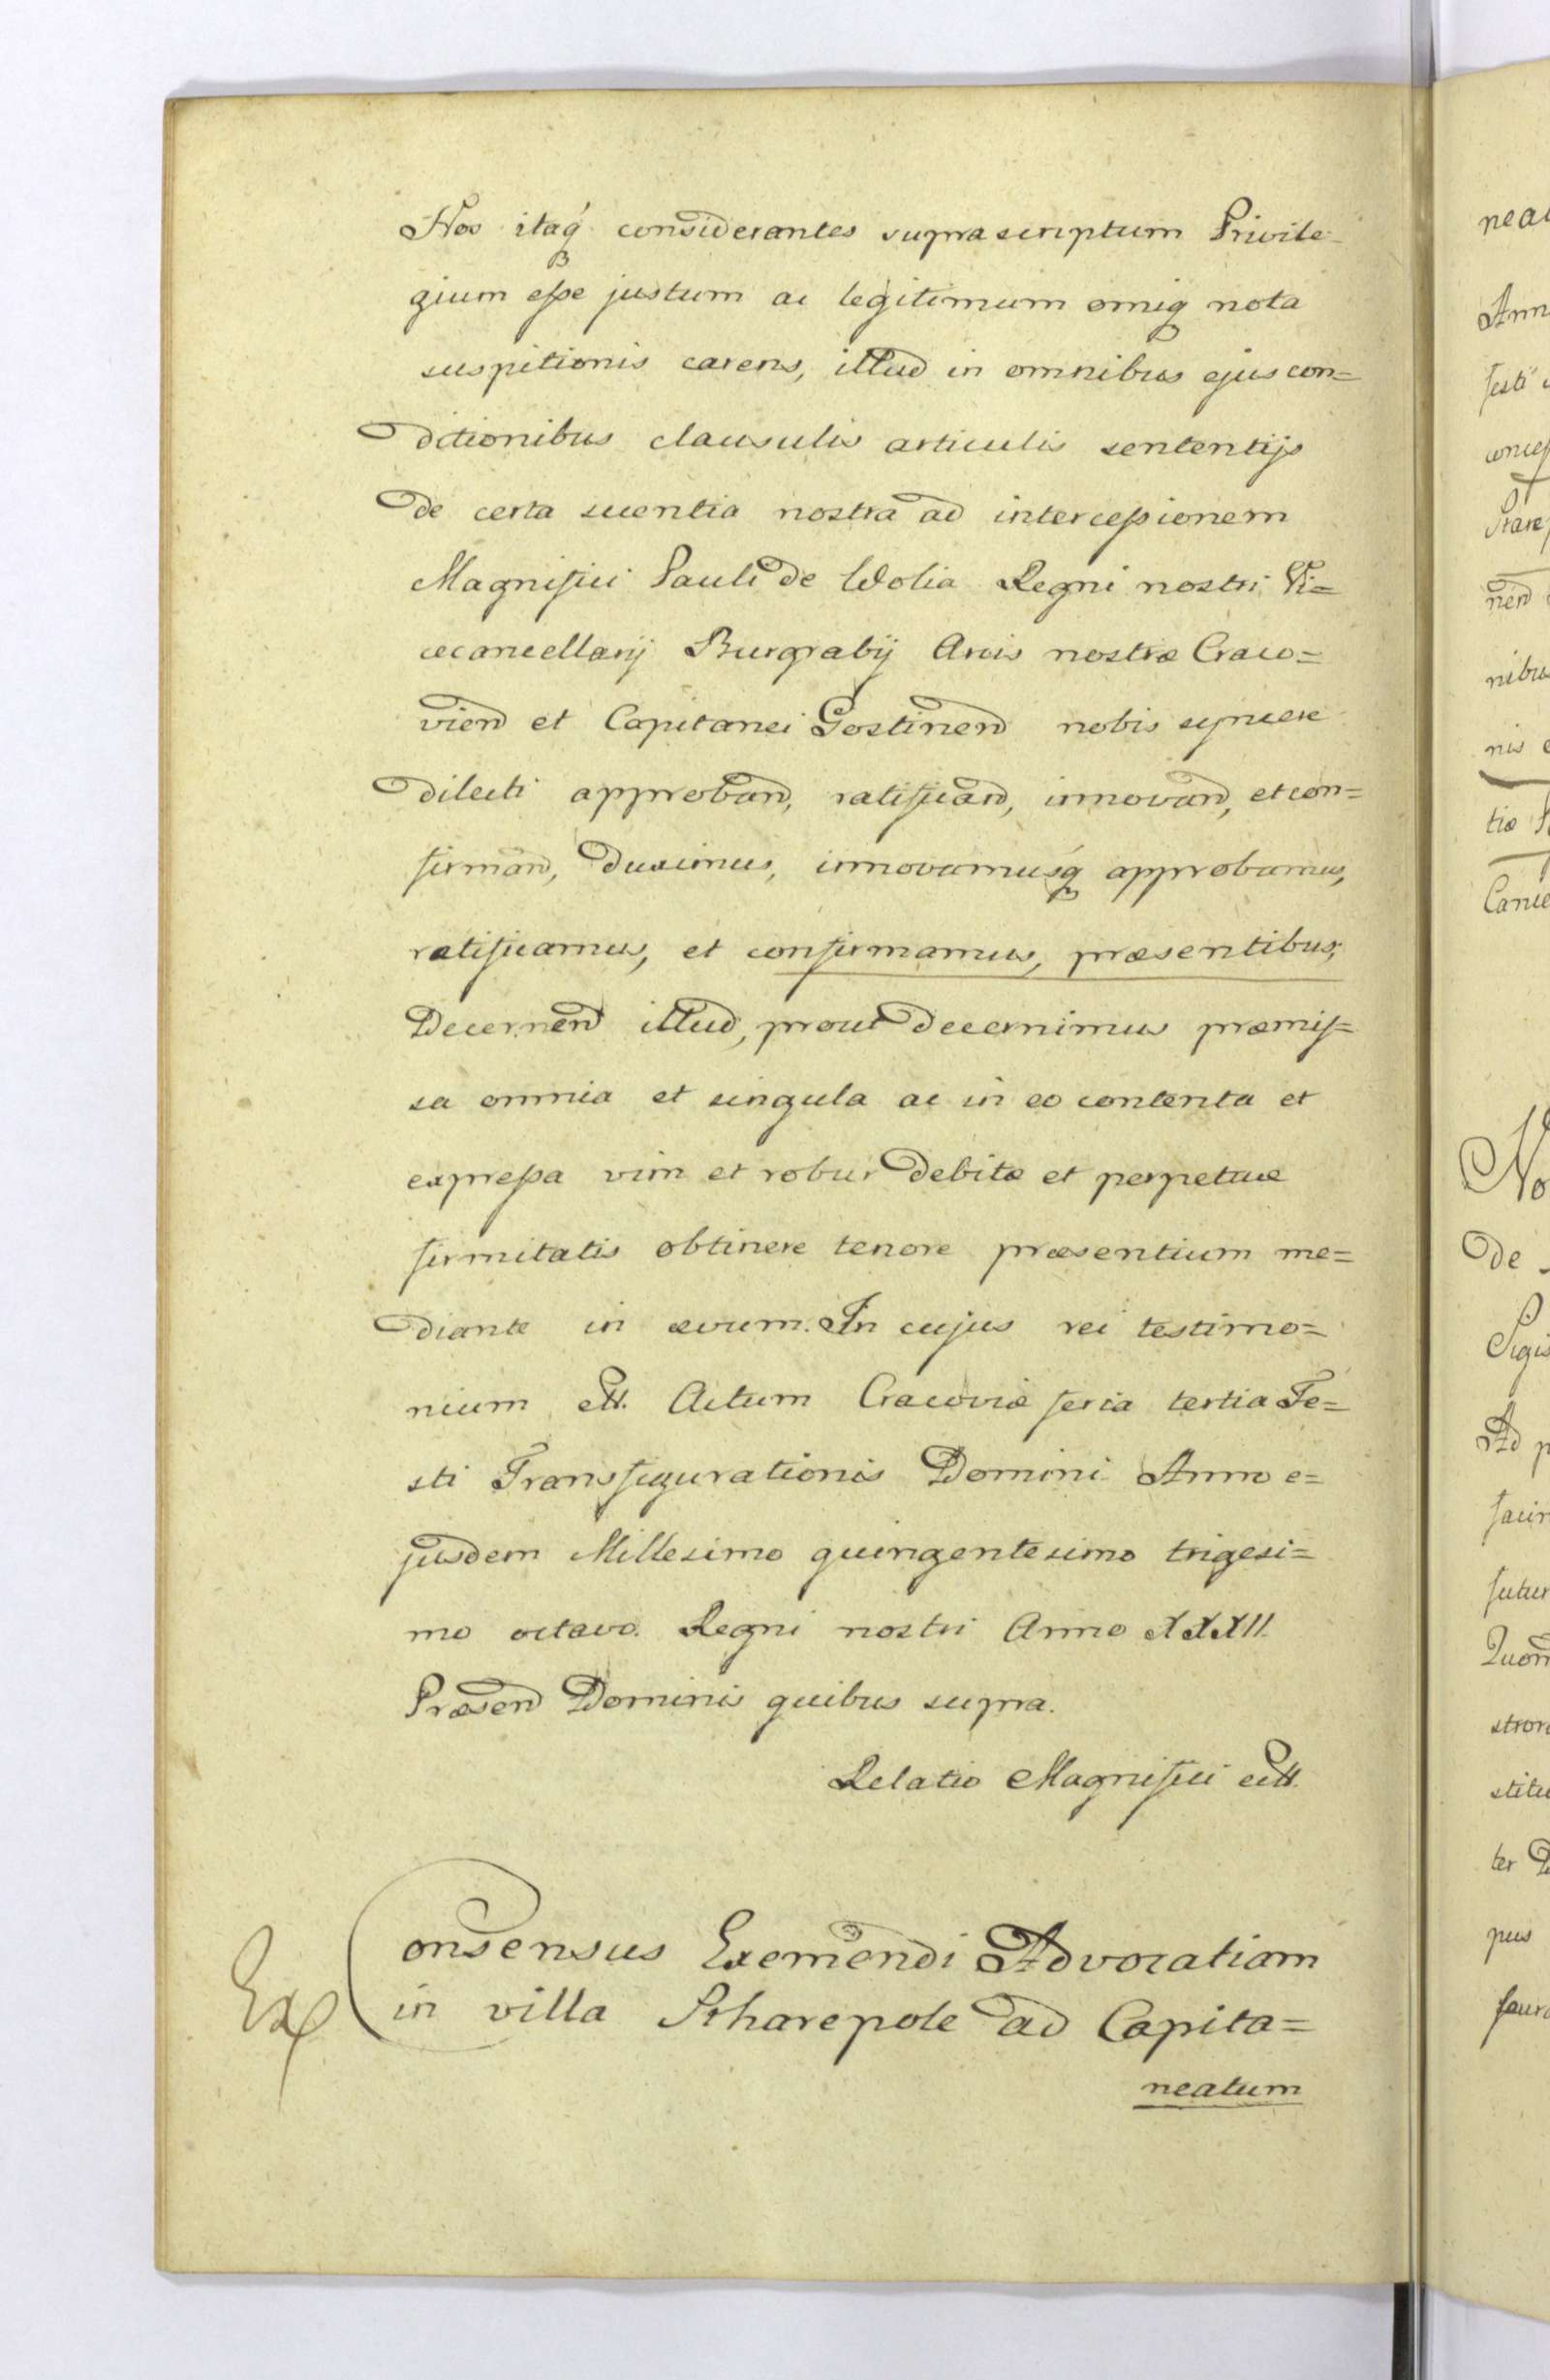 Nos itaq́ considerantes supra scriptum Privile-
gium eſse justum ac legitimum omiq nota
suspitionis carens, illud in omnibus ejus con=
ditionibus clausulis articulis sententijs
de certa scientia nostra ad interceſsionem
Magnifici Pauli de Wolia Regni nostri Vi=
cecancellarij Burgrabij Arcis nostræ Craco=
vien̄ et Capitanei Gostinen̄ nobis syncere
dilecti approban̄, ratifican̄, innovan̄, et con=
firman̄, duximus, innovamusq́ approbamus,
ratificamus, et confirmamus, præsentibus;
Decernen̄ illud, prout decernimus præmiſ=
sa omnia et singula ac in eo contenta et
expreſsa vim et robur debitæ et perpetuæ
firmitatis obtinere tenore præsentium me=
diante in ævum. In cujus rei testimo=
nium ett. Actum Cracoviæ feria tertia Fe=
sti Transfigurationis Domini Anno e=
jusdem Millesimo quingentesimo trigesi=
mo octavo. Regni nostri Anno XXXII.
Præsen̄ Dominis quibus supra.
Relatio Magnifici ett.
Ex
Consensus Exemendi Advocatiam
in villa Stharepole ad Capita=
neatum